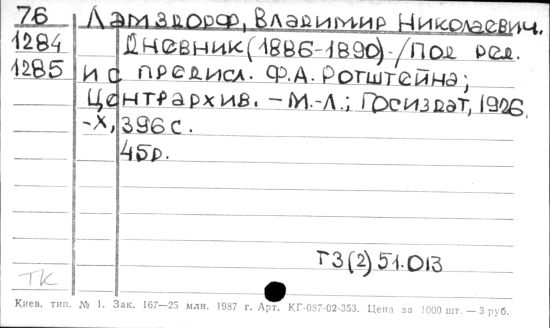 76 Ламздорф, Владимир Николаевич.
1284 Дневник (1886-1890)./Под ред.
1285 и с предисл. Ф.А. Ротштейна;
Центрархив. - М.-Л.; Госиздат, 1926.
-X, 396 с.
45р.
Т3(2)51.013
ТК
Киев. тип. № 1. Зак. 167—25 млн. 1987 г. Арт. КГ-087-02-353. Цена за 1000 шт. — 3 руб.